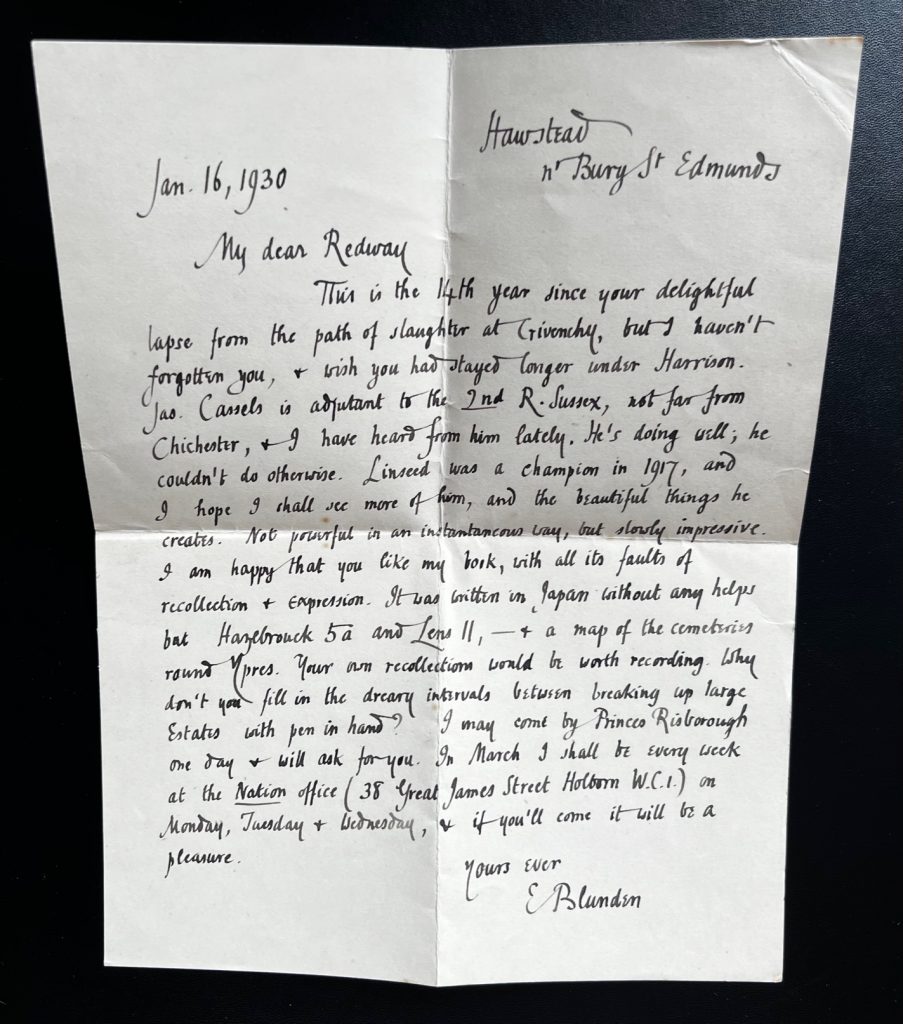 Hawstead
nr Bury St Edmunds
Jan. 16, 1930
My dear Redway
This is the 14th year since your delightful
lapse from the path of slaughter at Givenchy, but I haven't
forgotten you, & wish you had stayed longer under Harrison.
Jas. Cassels is adjutant to the 2nd R. Sussex, not far from
Chichester, & I have heard from him lately. He's doing well; he
couldn't do otherwise. Linseed was a champion in 1917, and
I hope I shall see more of him, and the beautiful things he
creates. Not powerful in an instantaneous way, but slowly impressive.
I am happy that you like my book, with all its faults of
recollection & expression. It was written in Japan without any helps
but Hazebrouck 5a and Lens 11, — & a map of the cemeteries
round Ypres. Your own recollections would be worth recording. Why
don't you fill in the dreary intervals between breaking up large
Estates with pen in hand? I may come by Princes Risborough
one day & will ask for you. In March I shall be every week
at the Nation office (38 Great James Street Holborn W.C.1.) on
Monday, Tuesday & Wednesday, & if you'll come it will be a
pleasure.
Yours ever
E Blunden